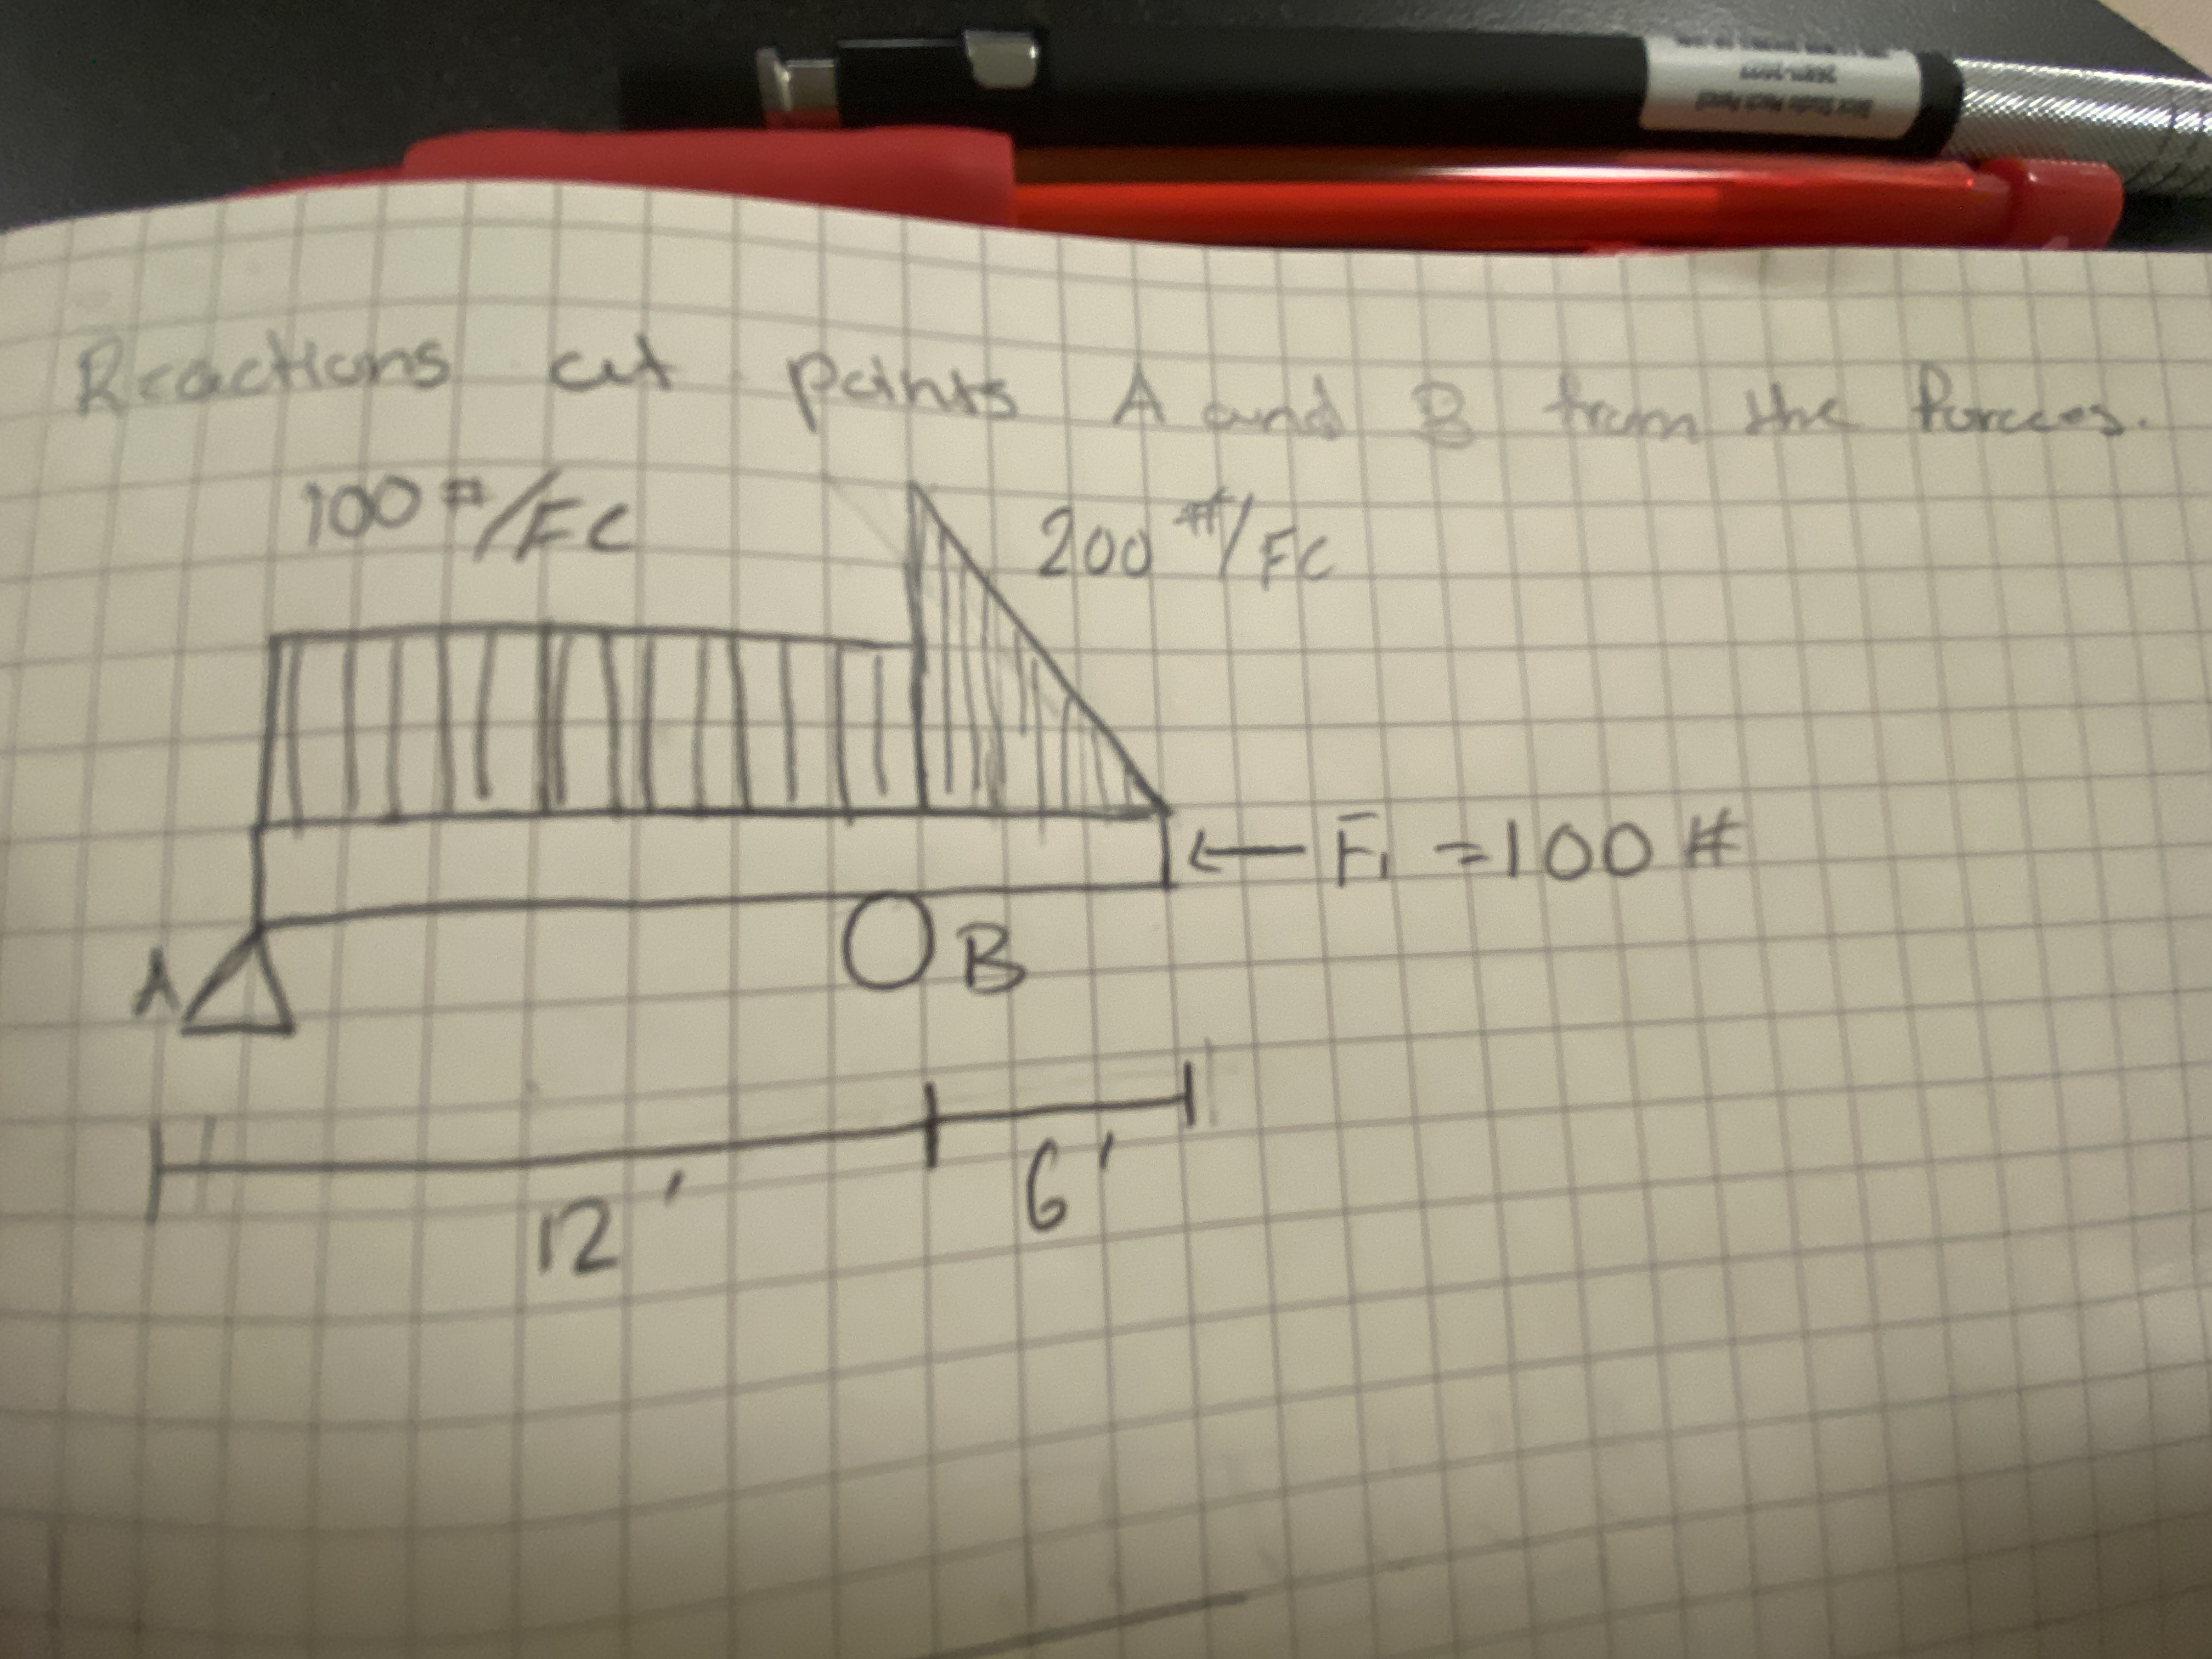 Reactions at points A and B from the forces.
100 #/FC
200 #/FC
← F₁ = 100 #
A
B
12'
6'